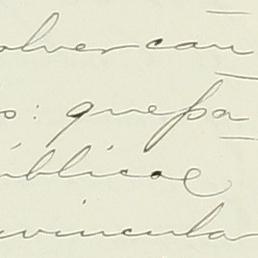 olver cau
s: que pa
úblicae
vincular